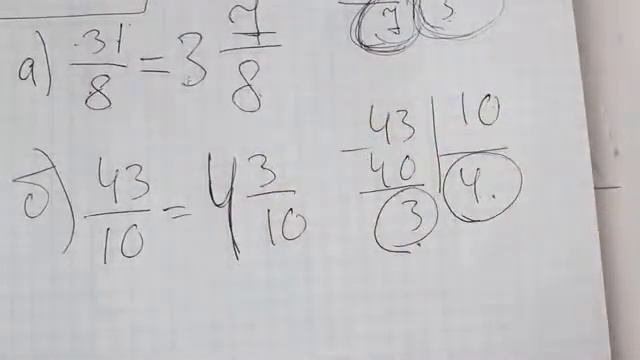 а) 31/8 = 3 7/8
7 3
б) 43/10 = 4 3/10
43 | 10
- 40 | 4.
3